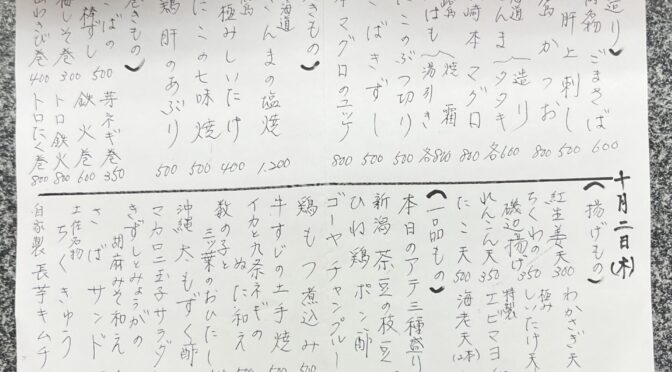 造り)
ごまさば 600
肝上刺し 500
かつお 800
さんま 造り タタキ 各600
本マグロ 800
はも 焼霜 湯引き 各800
たこのぶつ切り 500
さばきずし
本マグロのユッケ 800
焼きもの)
さんまの塩焼 1.200
極みしいたけ 400
たこの七味焼 500
鶏肝のあぶり 500
巻きもの)
さばの棒ずし 500
芽ネギ巻 350
梅しそ巻 300
鉄火巻 600
トロ鉄火 800
わさび巻 400
トロたく巻 800
十月二日(木)
(揚げもの)
紅生姜天 300
わかさぎ天
ちくわの磯辺揚げ 350
極みしいたけ天
れんこん天 350
特製エビマヨ
たこ天 500
海老天(2本)
(一品もの)
本日のアテ三種盛り
新潟茶豆の枝豆
ひね鶏ポン酢
ゴーヤチャンプルー
鶏もつ煮込み 500
牛すじの土手焼
イカと九条ネギのぬた和え
数の子と三ツ葉のおひたし
沖縄太もずく酢
マカロニ玉子サラダ
きずしとみょうがの胡麻みそ和え
さばサンド
土佐名物ちくきゅう
自家製長芋キムチ